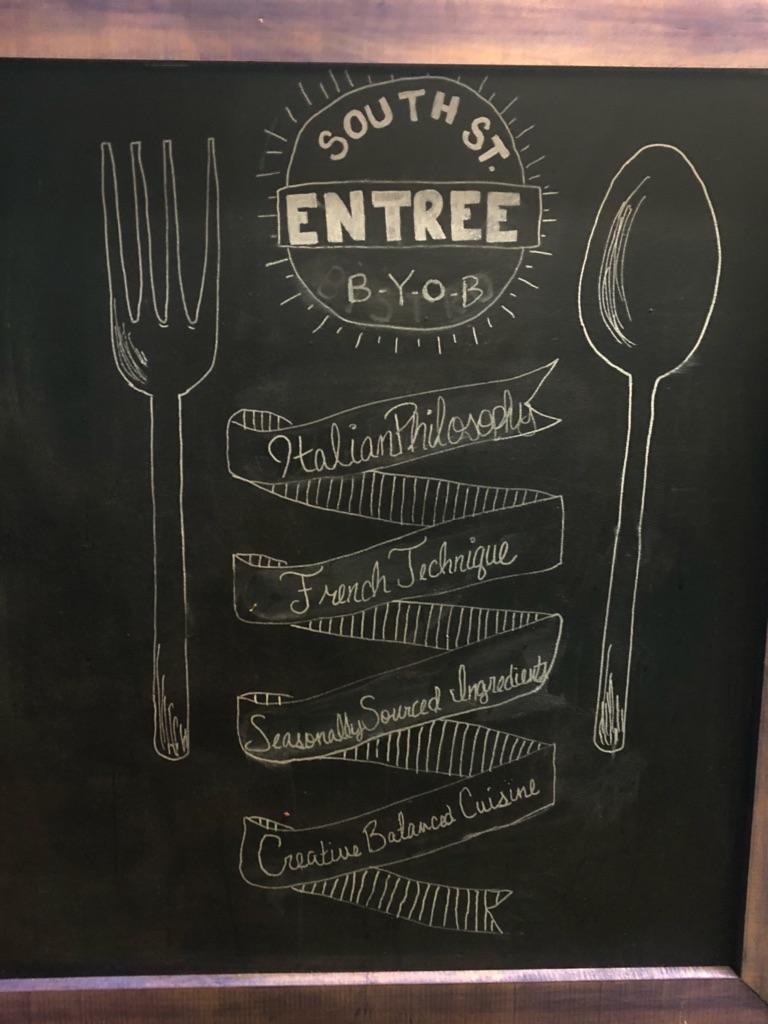 SOUTH ST.
ENTREE
B-Y-O-B
Italian Philosophy
French Technique
Seasonally Sourced Ingredients
Creative Balanced Cuisine